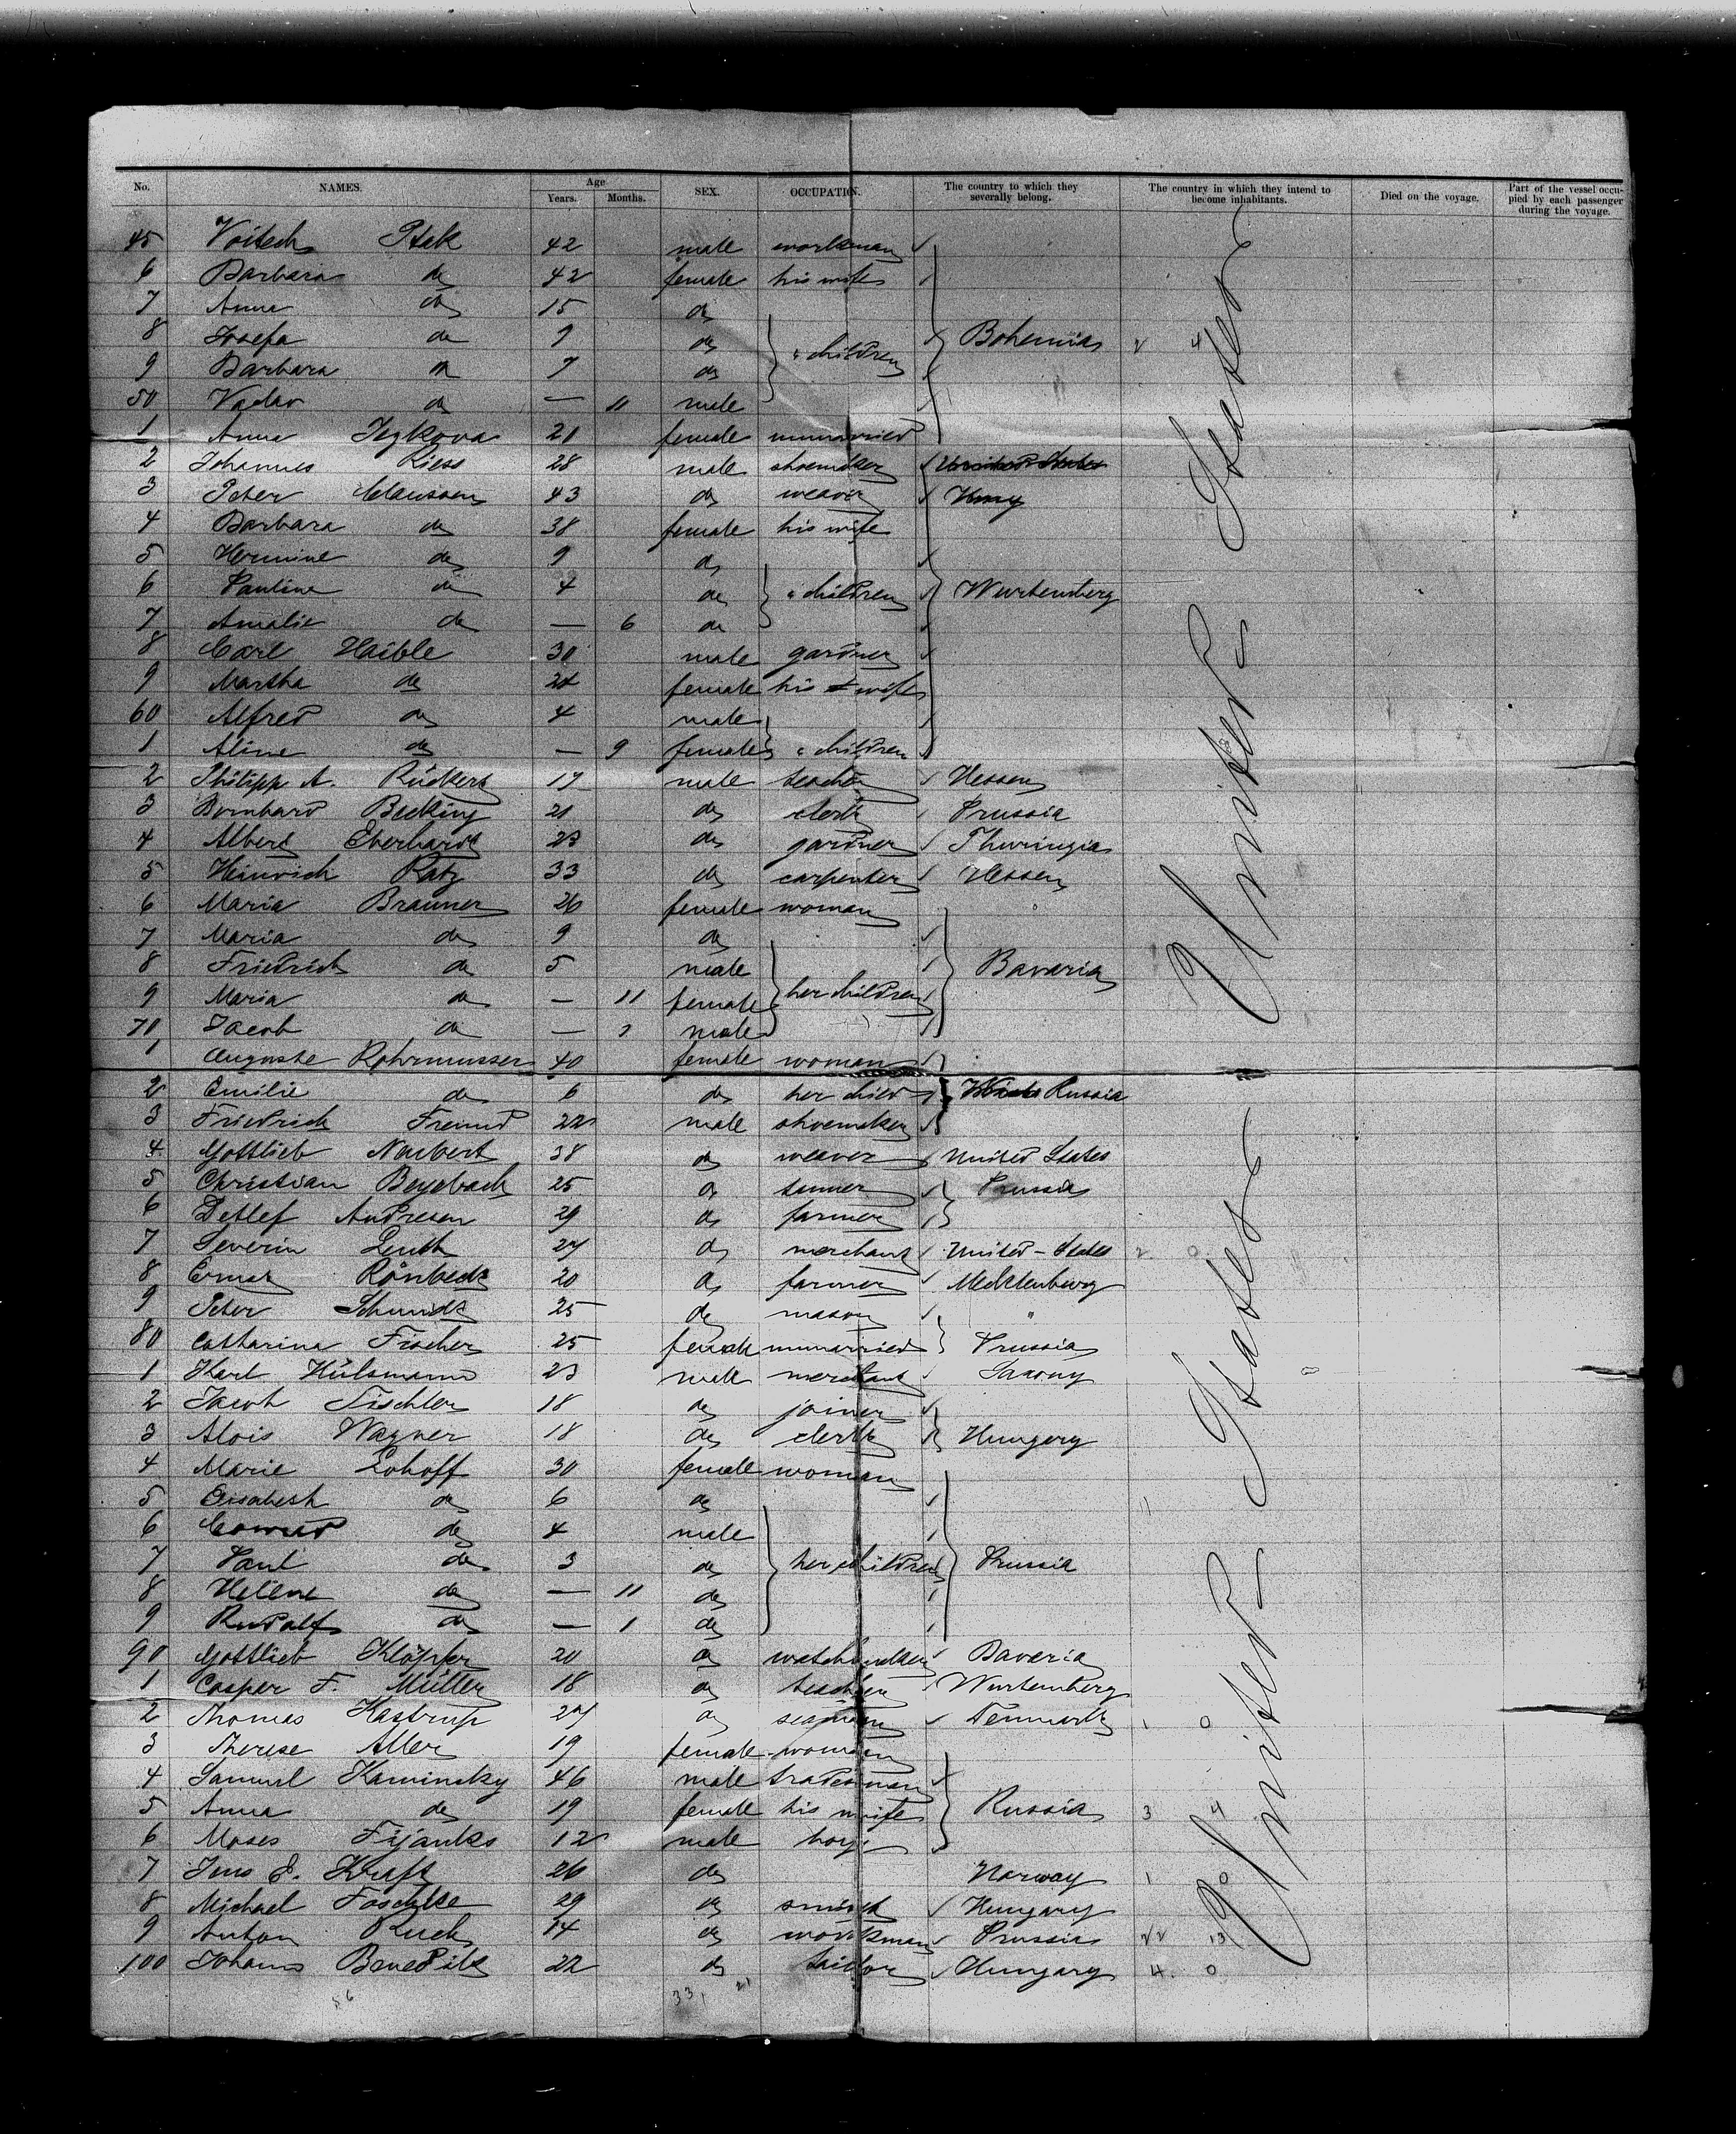 No. NAMES. Age Years. Months. SEX. OCCUPATION. The country to which they severally belong. The country in which they intend to become inhabitants. Died on the voyage. Part of the vessel occupied by each passenger during the voyage.
45 Voitech Ptak 42 male workman
6 Barbara do 42 female his wife
7 Anna do 15 do
8 Josefa do 9 do " children Bohemia
9 Barbara do 7 do
50 Vaclav do — 11 male
1 Anna 21 female unmarried
2 Johannes Riess 28 male shoemaker
3 Peter Claussen 43 do weaver
4 Barbara do 38 female his wife
5 Hermine do 9 do
6 Pauline do 4 do " children Wurtemberg
7 Amalie do — 6 do
8 Carl Haible 30 male gardner
9 Martha do 28 female his wife
60 Alfred do 4 male
1 Aline do — 9 female " children
2 Philipp A. Rückert 17 male teacher Hessen
3 Bernhard Becking 21 do clerk Prussia
4 Albert Eberhardt 23 do gardner Thuringia
5 Heinrich Katz 33 do carpenter Hessen
6 Maria Brauner 26 female woman
7 Maria do 9 do
8 Friedrich do 5 male Bavaria
9 Maria do — 11 female her children
70 Jacob do — male
1 Auguste 40 female woman
2 Emilie do 6 do her child Russia
3 Friedrich Freund 22 male shoemaker
4 Gottlieb Neubert 38 do weaver United States
5 Christian 25 do tanner Prussia
6 Detlef Andresen 29 do farmer
7 Severin 27 do merchant United-States 2 0
8 Ernst Rönbeck 20 do farmer Mecklenburg
9 Peter Schmidt 25 do mason "
80 Catharina Fischer 25 female unmarried Prussia
1 Karl Hülsmann 23 male merchant Saxony
2 Jacob Tischler 18 do joiner
3 Alois Wagner 18 do clerk Hungary
4 Marie Lohoff 30 female woman
5 Elisabeth do 6 do
6 Conrad do 4 male
7 Paul do 3 do her children Prussia
8 Helene do — 11 do
9 Rudolf do — 1 do
90 Gottlieb Klöpfer 20 do watchmaker Bavaria
1 Casper F. Müller 18 do teacher Wurtemberg
2 Thomas Kastrup 27 do seaman Denmark 1 0
3 Therese Aller 19 female woman
4 Samuel Kaminsky 46 male tradesman
5 Anna do 19 female his wife Russia 3 4
6 Moses Fijanks 12 male boy
7 Jens E. Kraft 26 do Norway 1 0
8 Michael 29 do smith Hungary
9 Anton 14 do workman Prussia 22 13
100 Johann Benedik 22 do tailor Hungary 4. 0
56 33, 21
United States
United States